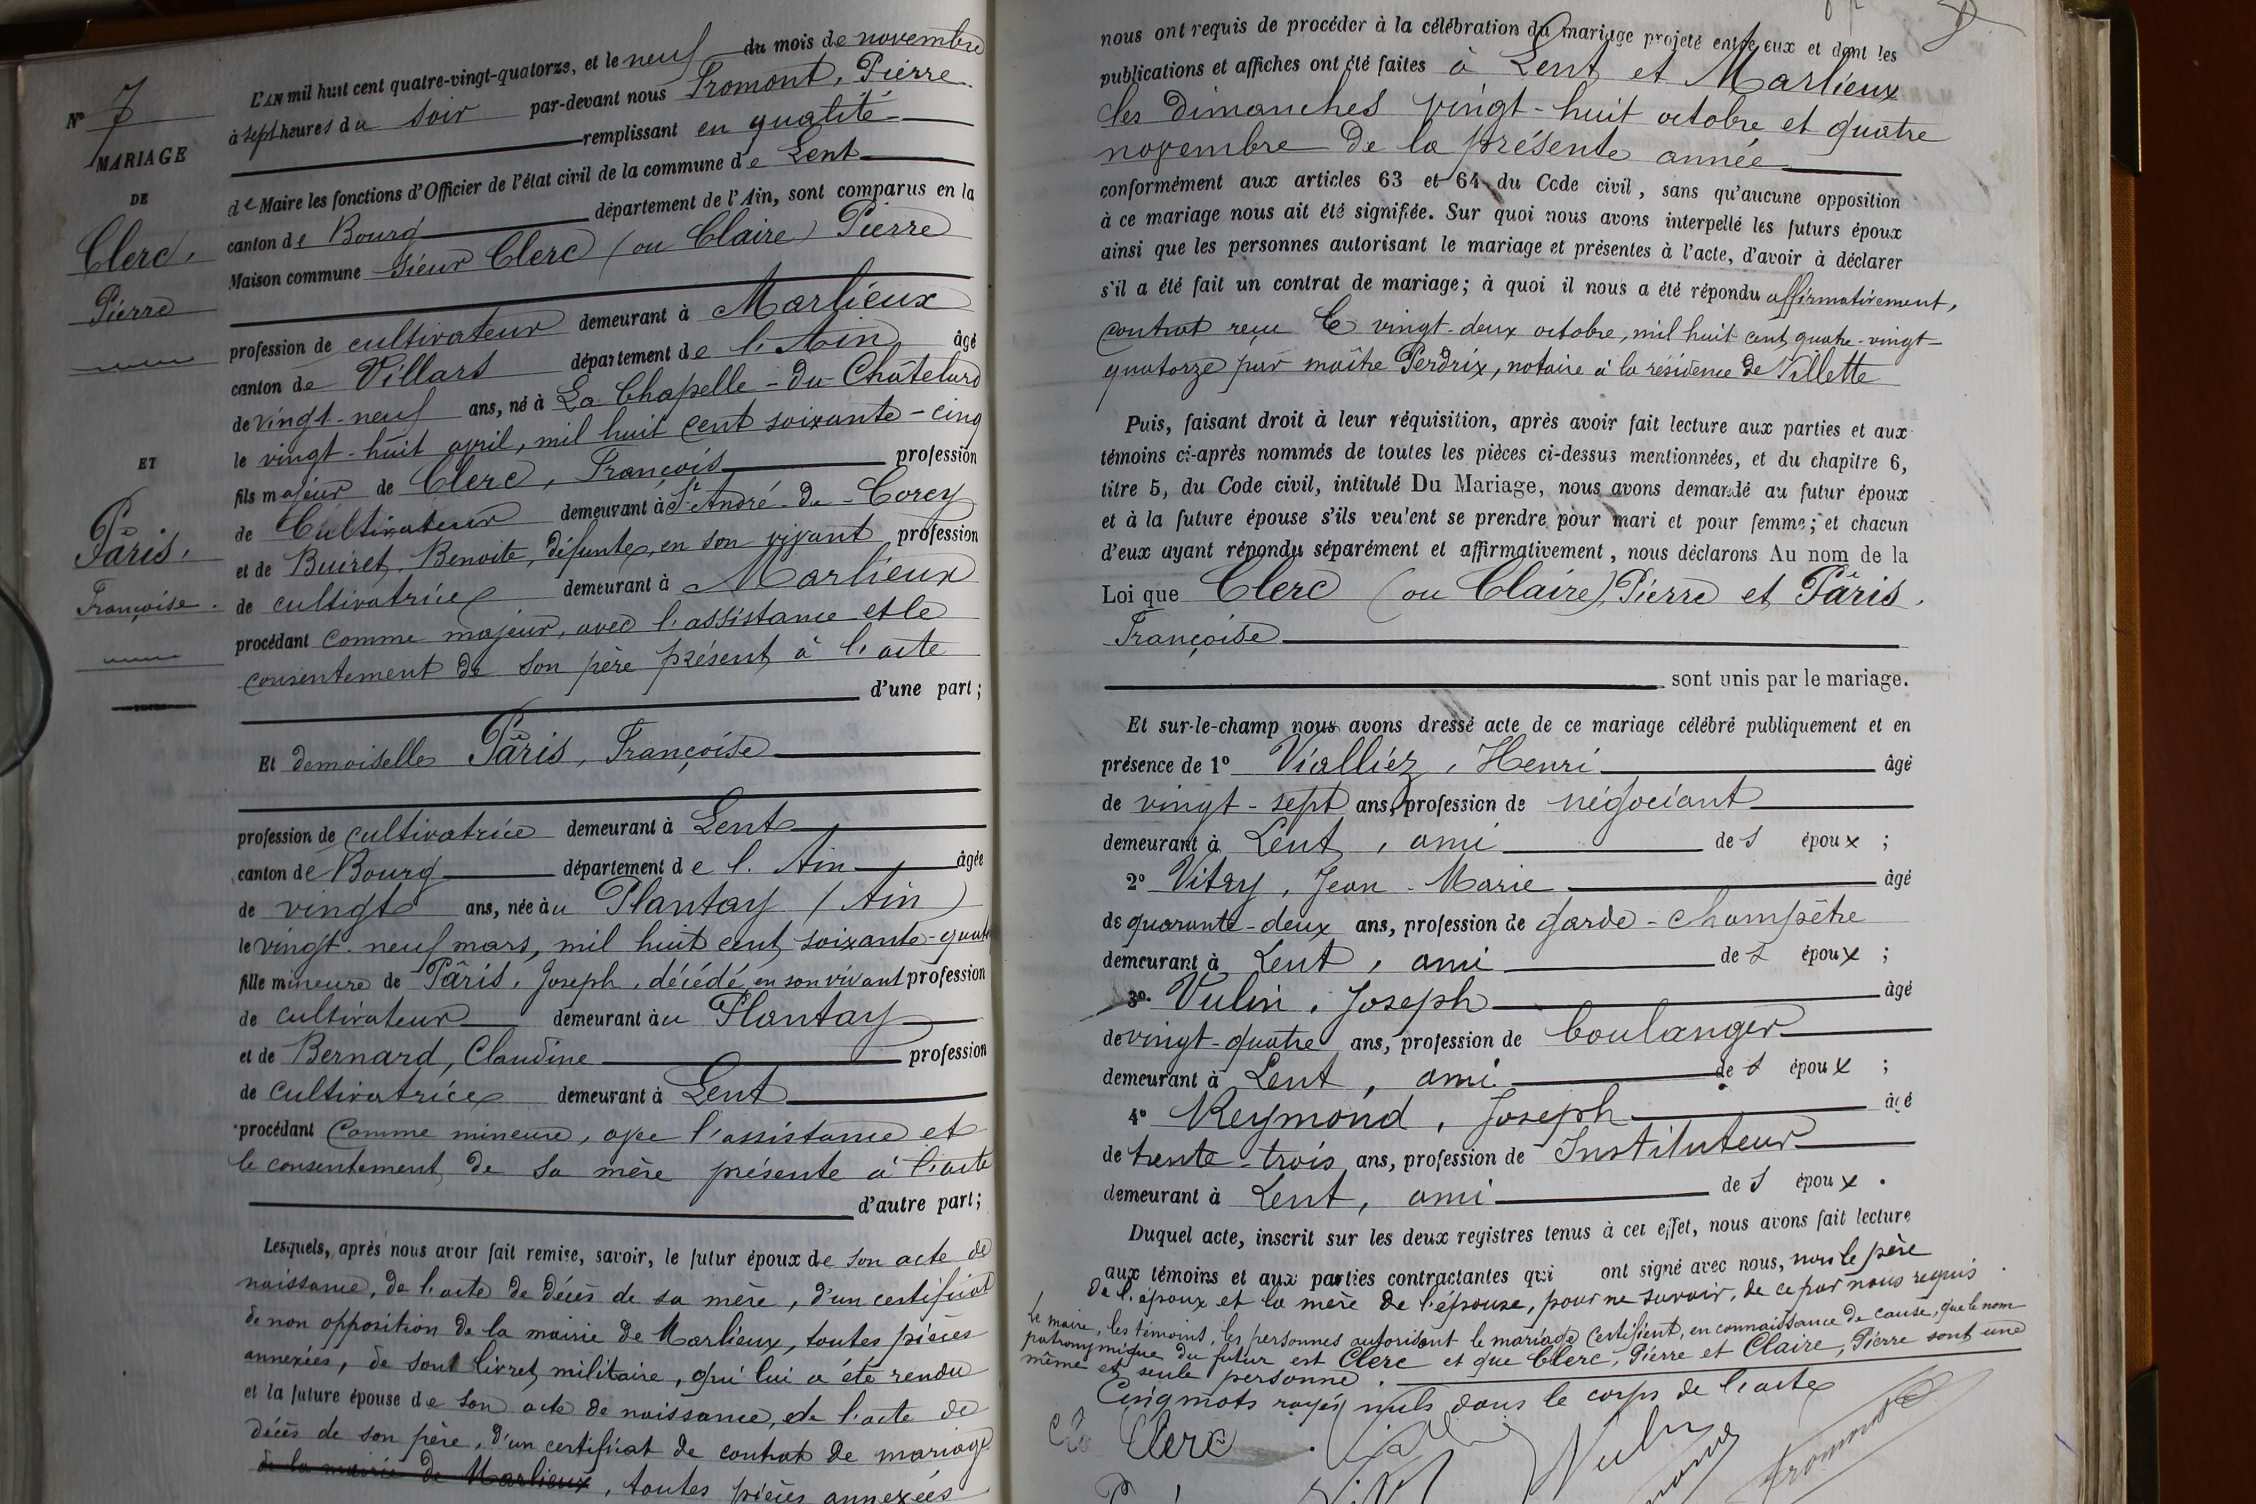 N° 7
MARIAGE
DE
Clerc,
Pierre
ET
Pâris,
Françoise
L'AN mil huit cent quatre-vingt-quatorze, et le neuf du mois de novembre
à sept heures du soir par-devant nous Fromont, Pierre
remplissant en qualité
de Maire les fonctions d'Officier de l'état civil de la commune de Lent
canton de Bourg département de l'Ain, sont comparus en la
Maison commune Sieur Clerc (ou Claire) Pierre
profession de cultivateur demeurant à Marlieux
canton de Villars département de l'Ain âgé
de vingt-neuf ans, né à La Chapelle-du-Châtelard
le vingt-huit avril, mil huit cent soixante-cinq
fils majeur de Clerc, François profession
de Cultivateur demeurant à St André-de-Corcy
et de Buiret, Benoite, défunte, en son vivant profession
de cultivatrice demeurant à Marlieux
procédant comme majeur, avec l'assistance et le
consentement de son père présent à l'acte
d'une part;
Et demoiselle Pâris, Françoise
profession de cultivatrice demeurant à Lent
canton de Bourg département de l'Ain âgée
de vingt ans, née au Plantay (Ain)
le vingt-neuf mars, mil huit cent soixante-quat
fille mineure de Pâris, Joseph, décédé, en son vivant profession
de cultivateur demeurant au Plantay
et de Bernard, Claudine profession
de cultivatrice demeurant à Lent
procédant comme mineure, avec l'assistance et
le consentement de sa mère présente à l'acte
d'autre part;
Lesquels, après nous avoir fait remise, savoir, le futur époux de son acte de
naissance, de l'acte de décès de sa mère, d'un certificat
de non opposition de la mairie de Marlieux, toutes pièces
annexées, de sont livret militaire, qui lui a été rendu
et la future épouse de son acte de naissance, de l'acte de
décès de son père, d'un certificat de contrat de mariage
de la mairie de Marlieux, toutes pièces annexées
nous ont requis de procéder à la célébration du mariage projeté entre eux et dont les
publications et affiches ont été faites à Lent et Marlieux
les dimanches vingt-huit octobre et quatre
novembre de la présente année
conformément aux articles 63 et 64 du Code civil, sans qu'aucune opposition
à ce mariage nous ait été signifiée. Sur quoi nous avons interpellé les futurs époux
ainsi que les personnes autorisant le mariage et présentes à l'acte, d'avoir à déclarer
s'il a été fait un contrat de mariage; à quoi il nous a été répondu affirmativement,
contrat reçu le vingt-deux octobre, mil huit cent quatre-vingt-
quatorze par maître Perdrix, notaire à la résidence de Villette
Puis, faisant droit à leur réquisition, après avoir fait lecture aux parties et aux
témoins ci-après nommés de toutes les pièces ci-dessus mentionnées, et du chapitre 6,
titre 5, du Code civil, intitulé Du Mariage, nous avons demandé au futur époux
et à la future épouse s'ils veulent se prendre pour mari et pour femme; et chacun
d'eux ayant répondu séparément et affirmativement, nous déclarons Au nom de la
Loi que Clerc (ou Claire), Pierre et Pâris,
Françoise
sont unis par le mariage.
Et sur-le-champ nous avons dressé acte de ce mariage célébré publiquement et en
présence de 1° Vialliez, Henri âgé
de vingt-sept ans, profession de négociant
demeurant à Lent, ami des époux;
2° Vitry, Jean-Marie âgé
de quarante-deux ans, profession de garde-champêtre
demeurant à Lent, ami des époux;
3° Vulin, Joseph âgé
de vingt-quatre ans, profession de boulanger
demeurant à Lent, ami des époux;
4° Reymond, Joseph âgé
de trente-trois ans, profession de Instituteur
demeurant à Lent, ami des époux.
Duquel acte, inscrit sur les deux registres tenus à cet effet, nous avons fait lecture
aux témoins et aux parties contractantes qui ont signé avec nous, non le père
de l'époux et la mère de l'épouse, pour ne savoir, de ce par nous requis.
Le maire, les témoins, les personnes autorisant le mariage certifient, en connaissance de cause, que le nom
patronymique du futur est Clerc et que Clerc, Pierre et Claire, Pierre sont une
même et seule personne.
Cinq mots rayés nuls dans le corps de l'acte
Clerc Vulin Fromont